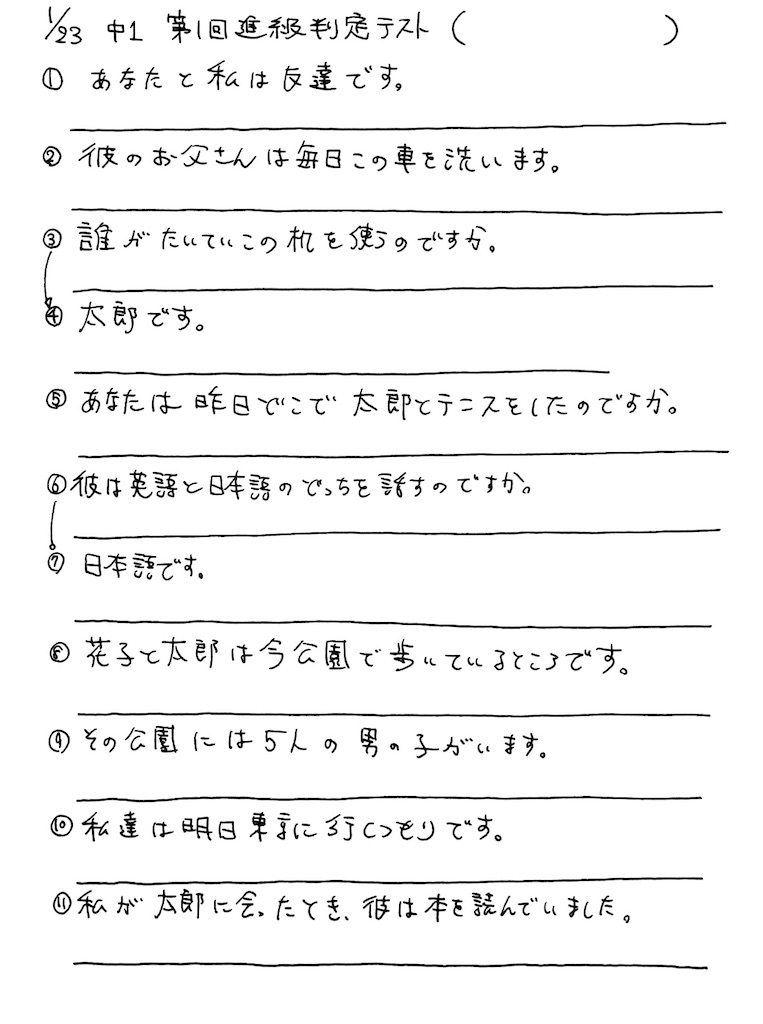 1/23 中1 第1回進級判定テスト (　　　)
① あなたと私は友達です。
② 彼のお父さんは毎日この車を洗います。
③ 誰がたいていこの机を使うのですか。
④ 太郎です。
⑤ あなたは昨日どこで太郎とテニスをしたのですか。
⑥ 彼は英語と日本語のどっちを話すのですか。
⑦ 日本語です。
⑧ 花子と太郎は今公園で歩いているところです。
⑨ その公園には5人の男の子がいます。
⑩ 私達は明日東京に行くつもりです。
⑪ 私が太郎に会ったとき、彼は本を読んでいました。